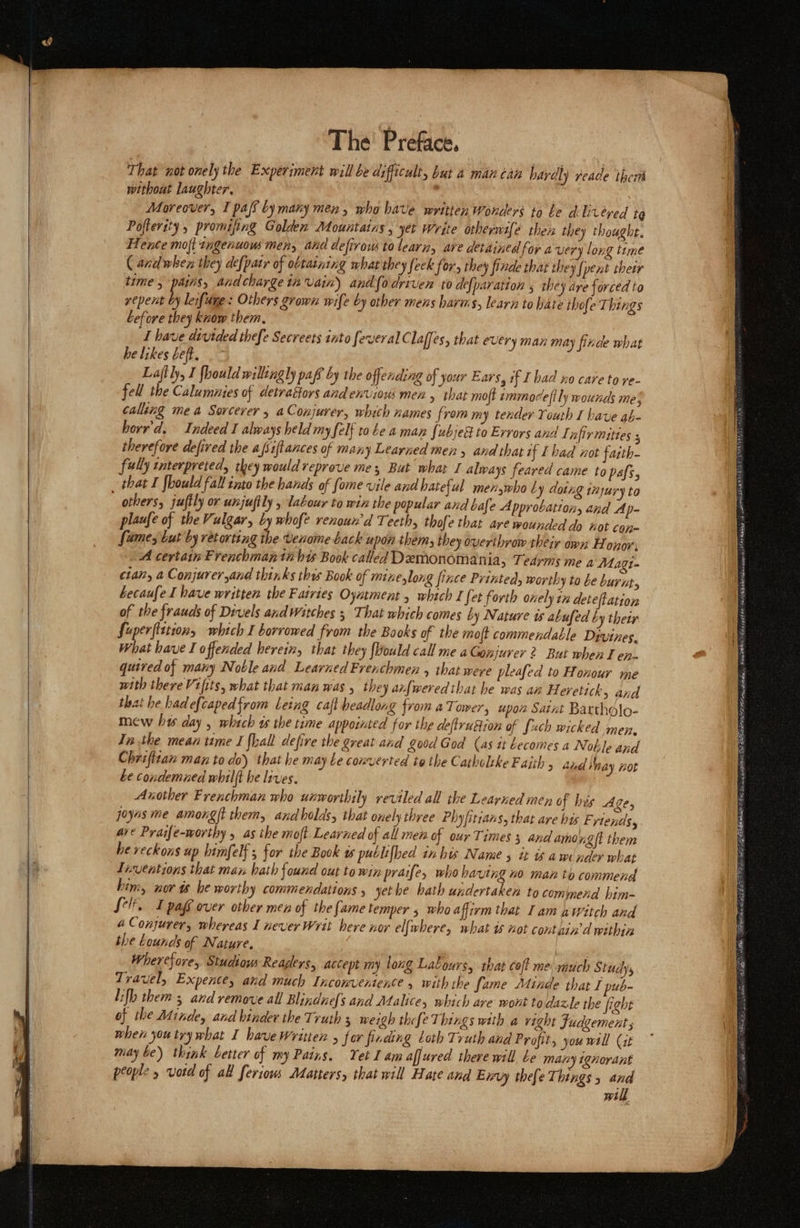 The Preface.
That not onely the Experiment will be difficult, but a man can hardly reade them
without laughter.
Moreover, I paſſ by many men, who have written Wonders to be delivered to
Poſterity, promiſing Golden Mountains, yet Write otherwiſe then they thought.
Hence moſt ingenuous men, and deſirous to learn, are detained for a very long time
(and when they deſpair of obtaining what they ſeek for, they finde that they ſpent their
time, pains, and charge in vain) and ſo driven to deſparation, they are forced to
repent by leiſure: Others grown wiſe by other mens harms, learn to hate thoſe Things
before they know them.
I have divided theſe Secreets into ſeveral Claſſes, that every man may finde what
he likes beſt.
Laſtly, I ſhould willingly paſſ by the offending of your Ears, if I had no care to re-
fell the Calumnies of detractors and envious men, that moſt immodeſtly wounds me,
calling me a Sorcerer, a Conjurer, which names from my tender Youth I have ab-
horr'd. Indeed I always held my ſelf to be a man ſubject to Errors and Infirmities;
therefore deſired the aſſiſtances of many Learned men, and that if I had not faith-
fully interpreted, they would reprove me; But what I always feared came to paſs,
that I ſhould fall into the hands of ſome vile and hateful men, who by doing injury to
others, juſtly or unjuſtly, labour to win the popular and baſe Approbation, and Ap-
plauſe of the Vulgar, by whoſe renoun'd Teeth, thoſe that are wounded do not con-
ſume, but by retorting the venome back upon them, they overthrow their own Honor.
A certain Frenchman in his Book called Dæmonomania, Tearms me a Magi-
cian, a Conjurer, and thinks this Book of mine, long ſince Printed, worthy to be burnt,
becauſe I have written the Fairies Oyntment, which I ſet forth onely in deteſtation
of the frauds of Divels and Witches; That which comes by Nature is abuſed by their
ſuperſtition, which I borrowed from the Books of the moſt commendable Divines.
What have I offended herein, that they ſhould call me a Conjurer? But when I en-
quired of many Noble and Learned Frenchmen, that were pleaſed to Honour me
with there Viſits, what that man was, they anſwered that he was an Heretick, and
that he had eſcaped from being caſt headlong from a Tower, upon Saint Bartholo-
mew his day, which is the time appointed for the deſtruction of ſuch wicked men.
In the mean time I ſhall deſire the great and good God (as it becomes a Noble and
Chriſtian man to do) that he may be converted to the Catholike Faith, and may not
be condemned whilſt he lives.
Another Frenchman who unworthily reviled all the Learned men of his Age,
joyns me amongſt them, and holds, that onely three Phyſitians, that are his Friends,
are Praiſe-worthy, as the moſt Learned of all men of our Times; and amongſt them
he reckons up himſelf; for the Book is publiſhed in his Name, it is a wunder what
Inventions that man hath found out to win praiſe, who having no man to commend
him, nor is he worthy commendations, yet he hath undertaken to commend him-
ſelf. I paſſ over other men of the ſame temper, who affirm that I am a Witch and
a Conjurer, whereas I never Writ here nor elſwhere, what is not contain'd within
the bounds of Nature.
Wherefore, Studious Readers, accept my long Labours, that coſt me much Study,
Travel, Expence, and much Inconvenience, with the ſame Minde that I pub-
liſh them; and remove all Blindneſs and Malice, which are wont to dazle the ſight
of the Minde, and hinder the Truth; weigh theſe Things with a right Judgement,
when you try what I have Written, for finding both Truth and Profit, you will (it
may be) think better of my Pains. Yet I am aſſured there will be many ignorant
people, void of all ſerious Matters, that will Hate and Envy theſe Things, and
will